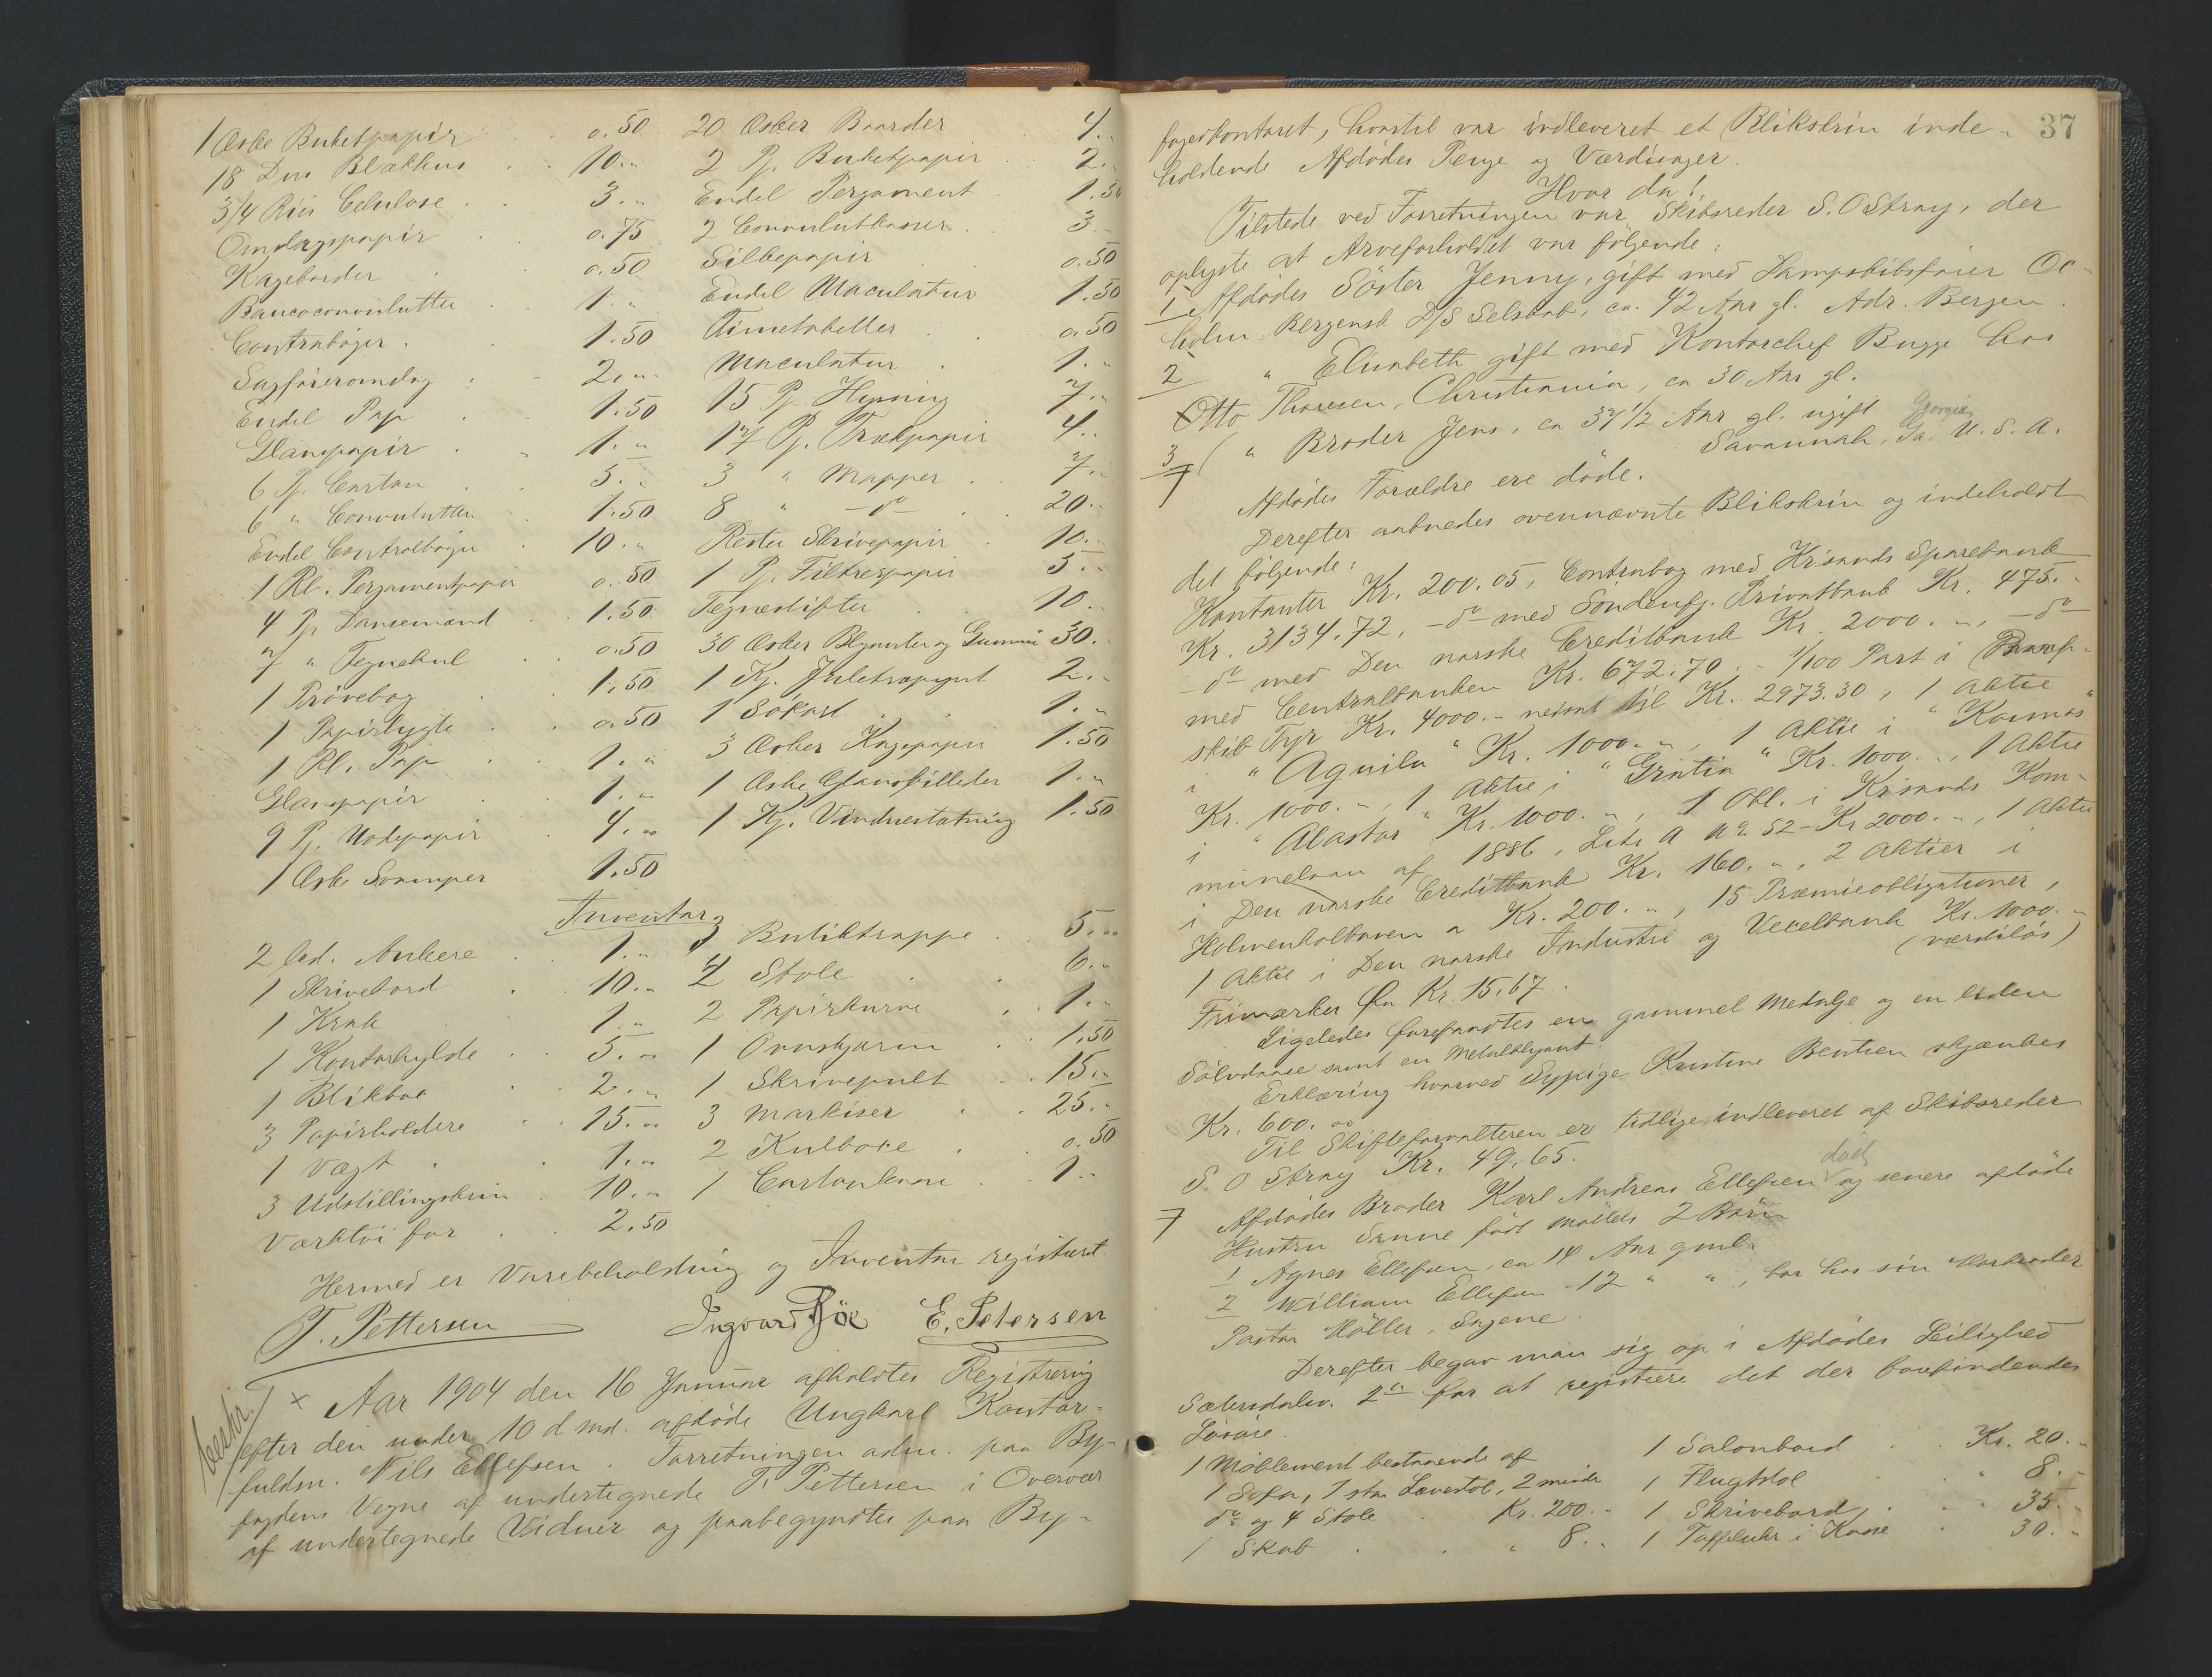 1 Æske Buketpapir . 0.50
18 Dus Blækhus . . 10. "
3/4 Ris Celulose . . 3. "
Omslagspapir . 0.75
Kageborder . 0.50
Bancoconvolutter . 1. "
Contrabøger . 1.50
Sagføreromslag . 2. "
Endel Pap . 1.50
Glanspapir . 1. "
6 Pj. Carton . 5. "
6 " Convolutter . 1.50
Endel Contrabøger . 10. "
1 Rl. Pergamentpapir 0.50
4 Pj. . 1.50
7 " Tegnekul . 0.50
1 Prøvebog . 1.50
1 Papirlygte . 0.50
1 Rl. Pap . 1. "
Glanspapir . 1. "
9 Pj. Notepapir . 4. "
1 Æske Svamper 1.50
20 Æsker Baarder 4. "
2 Pj. Buketpapir . 2. "
Endel Pergament . 1.50
2 Convolutkasser . 3. "
Silkepapir . 0.50
Endel Maculatur 1.50
Timetabeller . 0.50
Maculatur . 1. "
15 Pj. 7. "
17 Pj. Trækpapir 4. "
3 " Mapper . 7. "
8 " -do- . 20. "
Rester Skrivepapir . 10. "
1 Pj. Filtrerpapir 5. "
Tegnestifter . 10. "
30 Æsker Blyanter og Gummi 30. "
1 Kj. Juletræpynt 2. "
1 . 1. "
3 Æsker Kagepapir 1.50
1 Æske Glansbilleder 1. "
1 Kj. 1.50
Inventar
2 1. "
1 Skrivebord . 10. "
1 Krak 1. "
1 Kontorhylde . . 5. "
1 Blikboe . 2. "
3 Papirholdere . 15. "
1 Vægt . 1. "
3 Udstillingskrin . 10. "
Værktøi for . . 2.50
1 Butiktrappe . . 5. "
4 Stole . 6. "
2 Papirkurve . 1. "
1 Ovnskjærm . 1.50
1 Skrivepult . . 15. "
3 Markiser . . 25. "
2 Kulboxe . 0.50
1 . 1. "
Hermed er Varebeholdning og Inventar registreret
T. Pettersen Ingvard Bøe E. Petersen
x Aar 1904 den 16 Januar afholdtes Registrering
efter den under 10 d md. afdøde Ungkarl Kontor-
fuldm. Nils Ellefsen. Forretningen adm. paa By-
fogdens Vegne af undertegnede T. Pettersen i Overvær
af undertegnede Vidner og paabegyndtes paa By-
37
fogedkontoret, hvortil var indleveret et Blikskrin inde-
holdende Afdødes Penge og Værdisager.
Hvor da!
Tilstede ved Forretningen var Skibsreder S. O Stray, der
oplyste at Arveforholdet var følgende:
1 Afdødes Søster Jenny, gift med Dampskibsfører Oc-
holm Bergensk D/S Selskab, ca. 42 Aar gl. Adr. Bergen.
2 " Elisabeth gift med Kontorchef Bugge hos
Otto Thoresen, Christiania, ca 30 Aar gl.
3 ( " Broder Jens, ca 37 1/2 Aar gl. ugift Georgia
Savannah, Ga. U.S.A.
7
Afdødes Forældre ere døde.
Derefter aabnedes ovennævnte Blikskrin og indeholdt
det følgende:
Kontanter Kr. 200.05, Contrabog med Krsands Sparebank
Kr. 3134.72, -do- med Søndenfj. Privatbank Kr. 475. "
-do- med Den norske Creditbank Kr. 2000. ", -do-
med Centralbanken Kr. 672.70. - 1/100 Part i Damp-
skib Fyr Kr. 4000. " nedsat til Kr. 2973.30, 1 Aktie
i "Aquila" Kr. 1000. ", 1 Aktie i "Kosmos"
Kr. 1000. ", 1 Aktie i "Gratia" Kr. 1000. ", 1 Aktie
i "Alastor" Kr. 1000. ", 1 Obl. i Krsands Kom-
munelaan af 1886, Litr A No 52 - Kr 2000. ", 1 Aktie
i Den norske Creditbank Kr. 160. ", 2 Aktier i
Holmenkolbanen a Kr. 200. ", 15 Præmieobligationer,
1 Aktie i Den norske Industri og Vexelbank Kr. 1000. "
(værdiløs)
Frimærker for Kr. 15.67.
Ligeledes forefandtes en gammel Medalje og en liden
Sølvdaase samt en Metalblyant.
Erklæring hvorved Sypige Kristine Bentsen skjænkes
Kr. 600.00
Til Skifteforvalteren er tidligere indleveret af Skibsreder
S. O Stray Kr. 49.65.
7 Afdødes Broder Karl Andreas Ellefsen død og senere afdøde
Hustru Sanne født Møllers 2 Børn
1 Agnes Ellefsen, ca 14 Aar gml.
2 William Ellefsen 12 " ", bor hos sin Morbroder
Pastor Møller, Sogne.
Derefter begav man sig op i Afdødes Leilighed
Sætersdalsv. 2 for at registrere det der befindendes
Løsøre.
1 Møblement bestaaende af
1 Sofa, 1 stor Lænestol, 2 mindre
do og 4 Stole . Kr. 200. "
1 Skab . . " 8. "
1 Salonbord . . Kr. 20. "
1 Flugtstol . . " 8. "
1 Skrivebord . . " 35. "
1 Taffeluhr i Kasse . 30. "